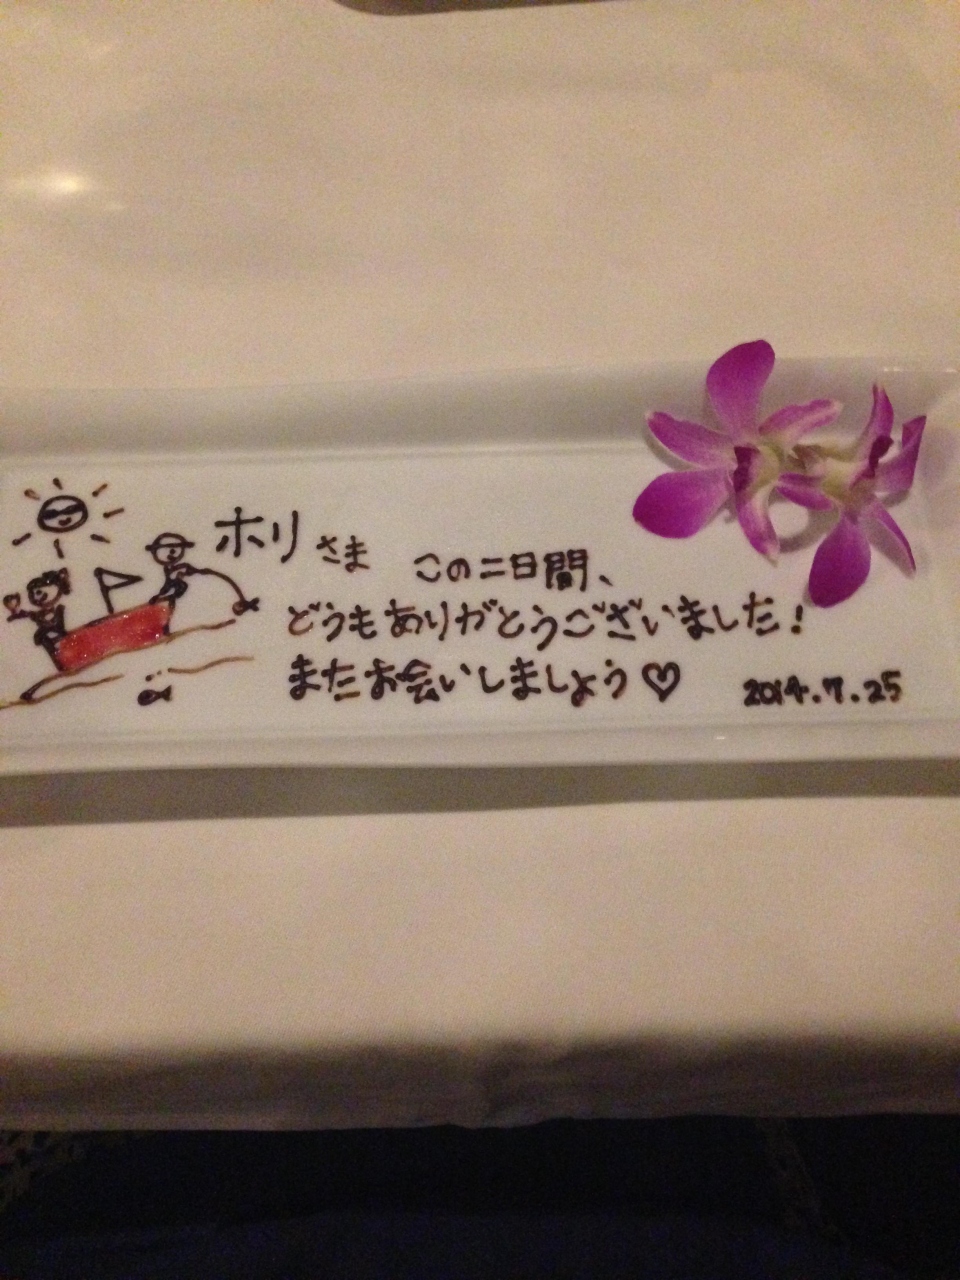 ホリさま この二日間、
どうもありがとうございました!
またお会いしましょう♡ 2014.7.25